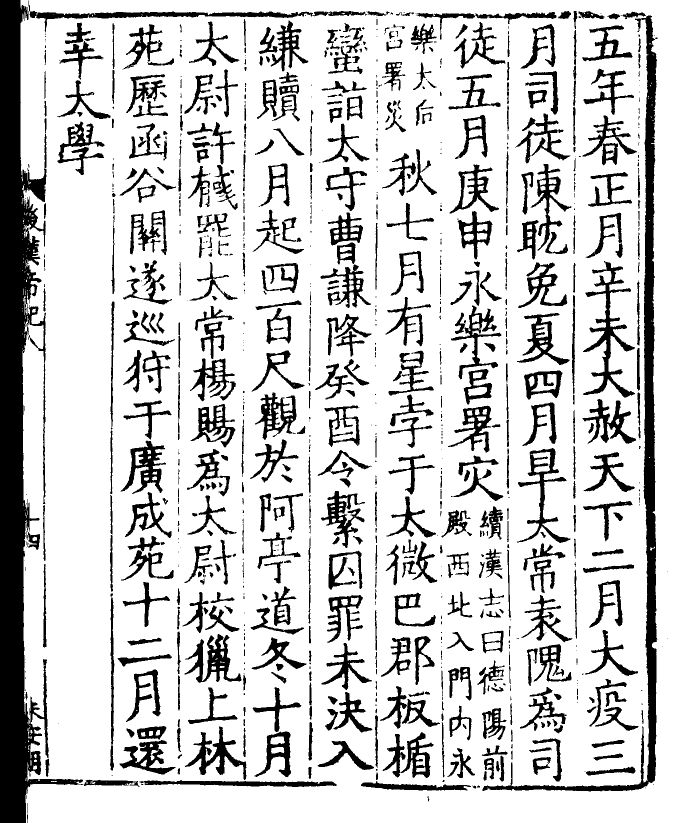 五年春正月辛未大赦天下二月大疫三
月司徒陳耽免夏四月旱太常袁隗爲司
徒五月庚申永樂宮署灾續漢志曰德陽前殿西北入門內永
樂太后宮署災秋七月有星孛于太微巴郡板楯
蠻詣太守曹謙降癸酉令繫囚罪未決入
縑贖八月起四百尺觀於阿亭道冬十月
太尉許戫罷太常楊賜爲太尉校獵上林
苑歷函谷關遂巡狩于廣成苑十二月還
幸太學
後漢帝紀八
十四